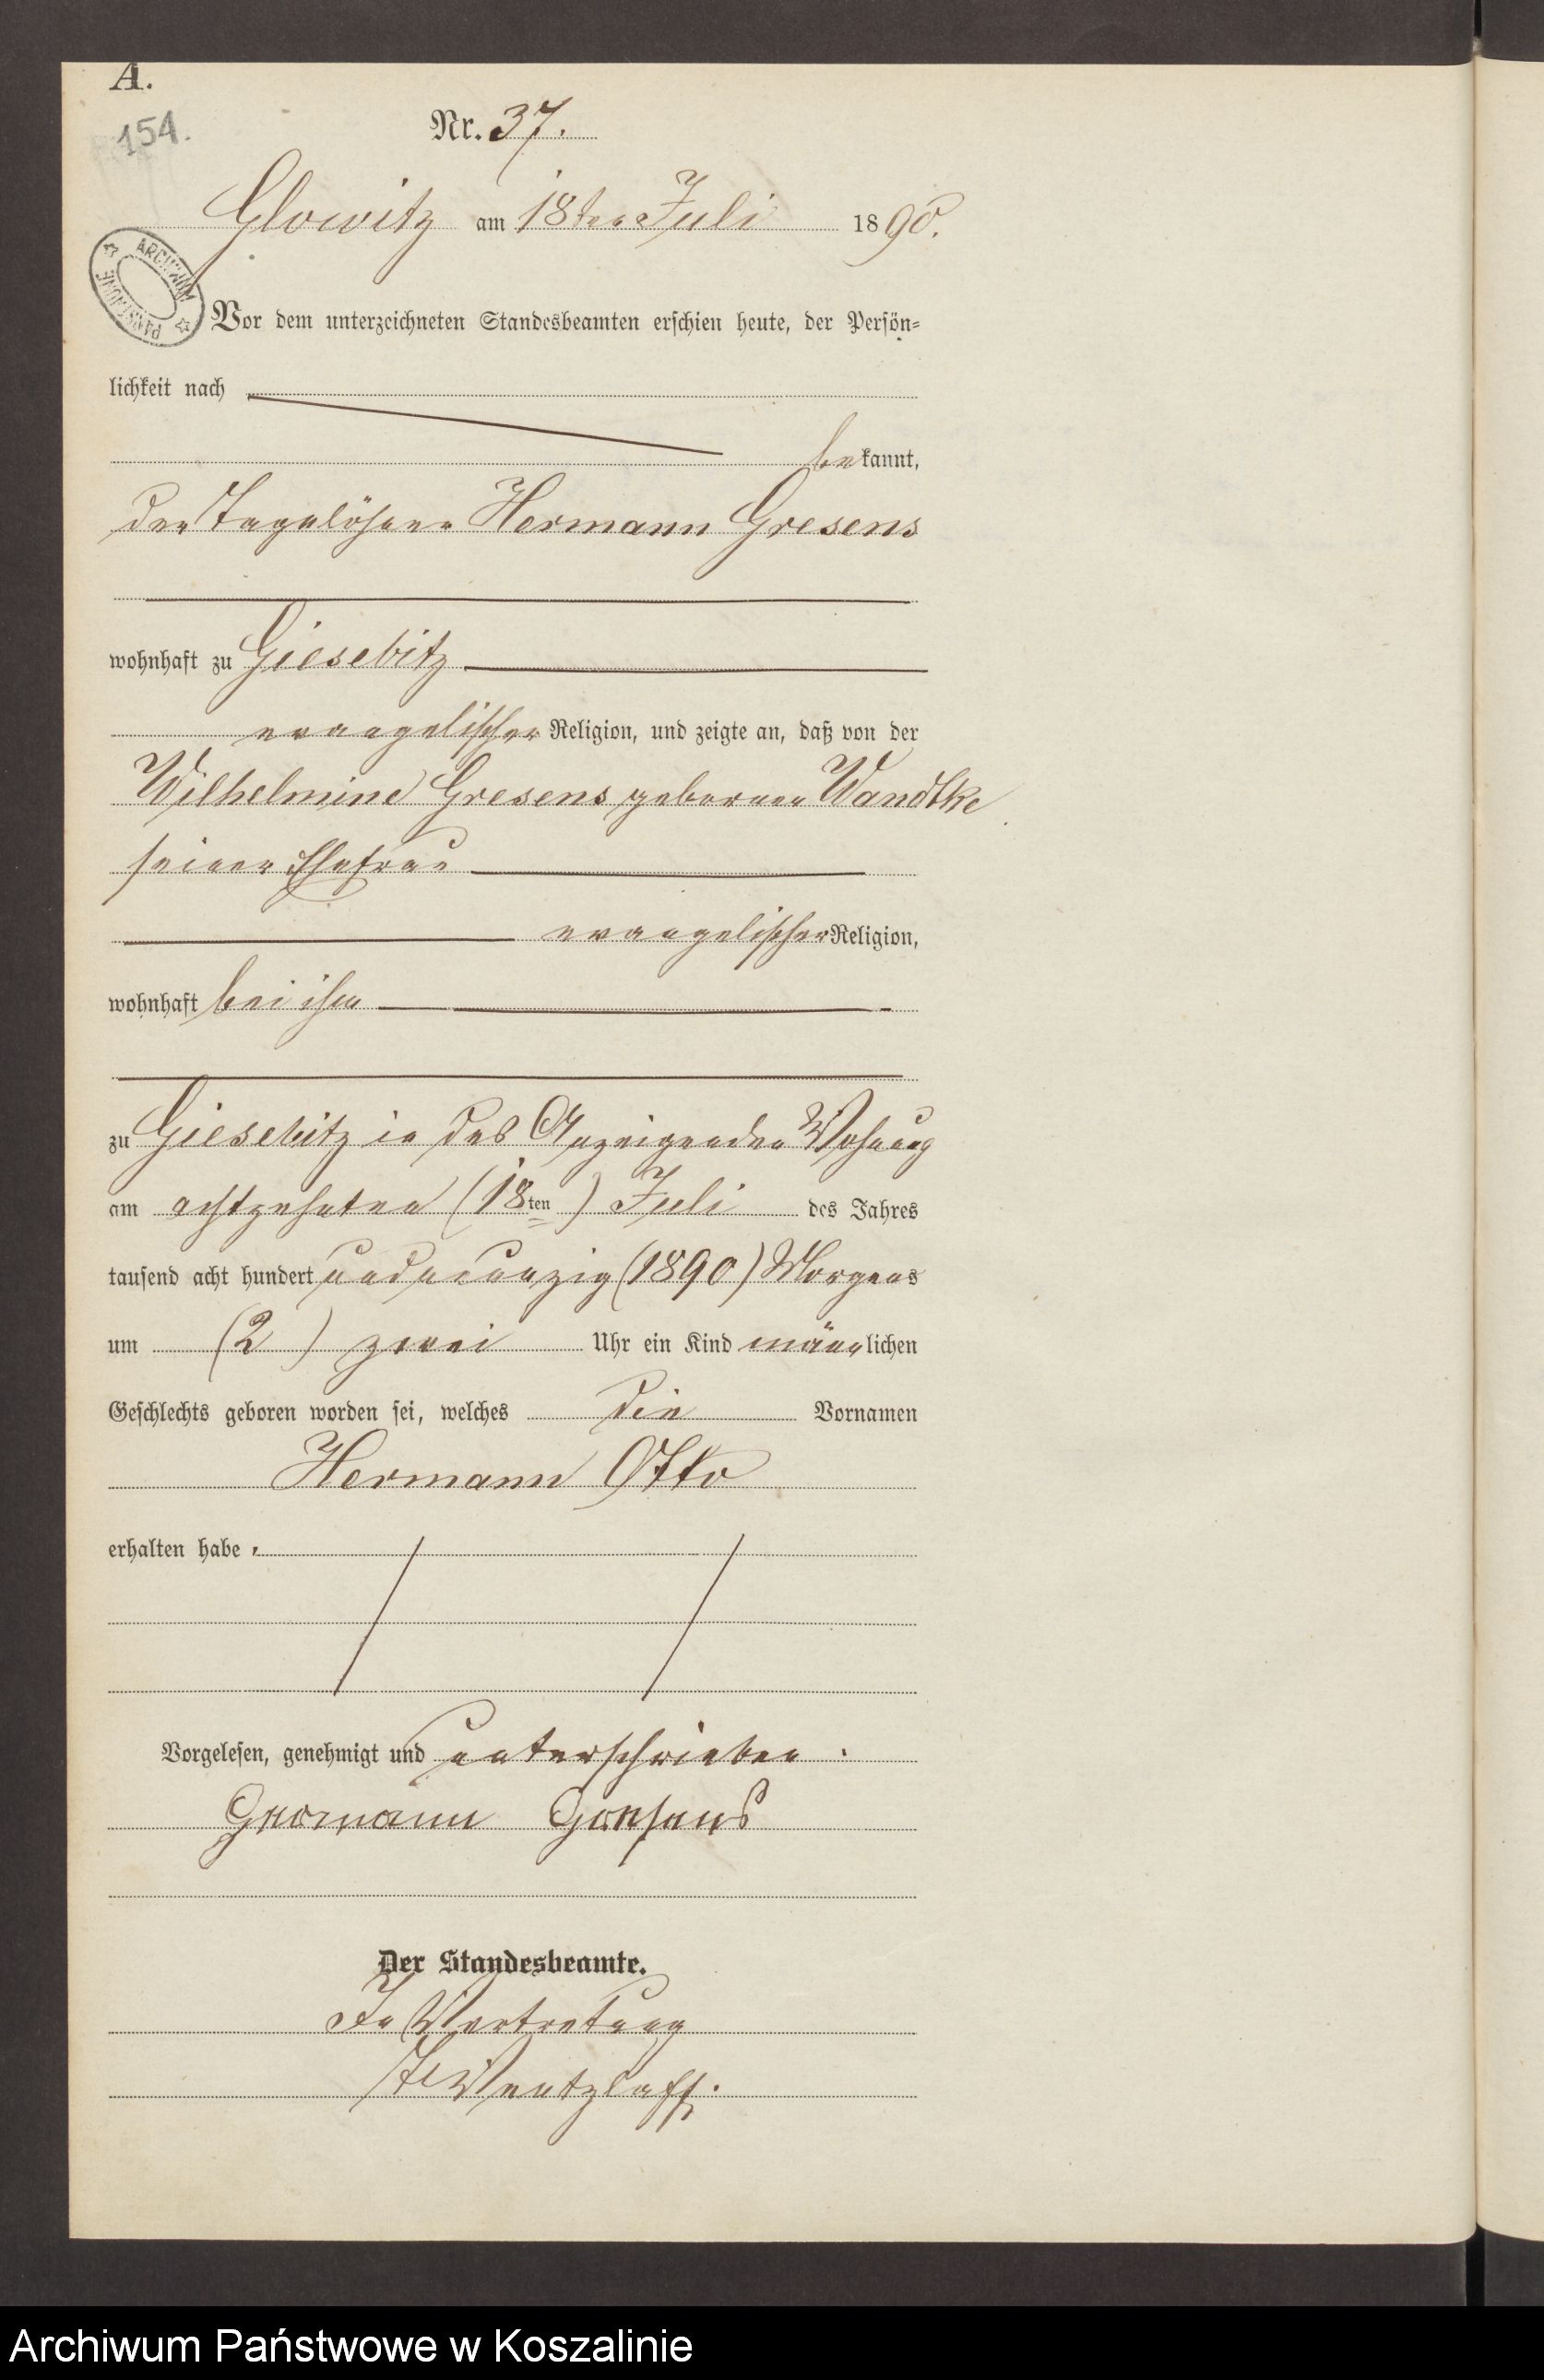 A.
154.
Nr. 37.
Glowitz am 18ten Juli 1890.
ARCHIWUM PAŃSTWOWE
Vor dem unterzeichneten Standesbeamten erschien heute, der Persön-
lichkeit nach
bekannt,
der Tagelöhner Hermann Gresens
wohnhaft zu Giesebitz
evangelischer Religion, und zeigte an, daß von der
Wilhelmine Gresens geborenen Wandtke
seiner Ehefrau
evangelischer Religion,
wohnhaft bei ihm
zu Giesebitz in des Anzeigenden Wohnung
am achtzehnten (18ten) Juli des Jahres
tausend acht hundert und neunzig (1890) Morgens
um (2) zwei Uhr ein Kind männlichen
Geschlechts geboren worden sei, welches die Vornamen
Hermann Otto
erhalten habe.
Vorgelesen, genehmigt und unterschrieben.
Hermann Gresens
Der Standesbeamte.
In Vertretung
Wentzlaff.
Archiwum Państwowe w Koszalinie